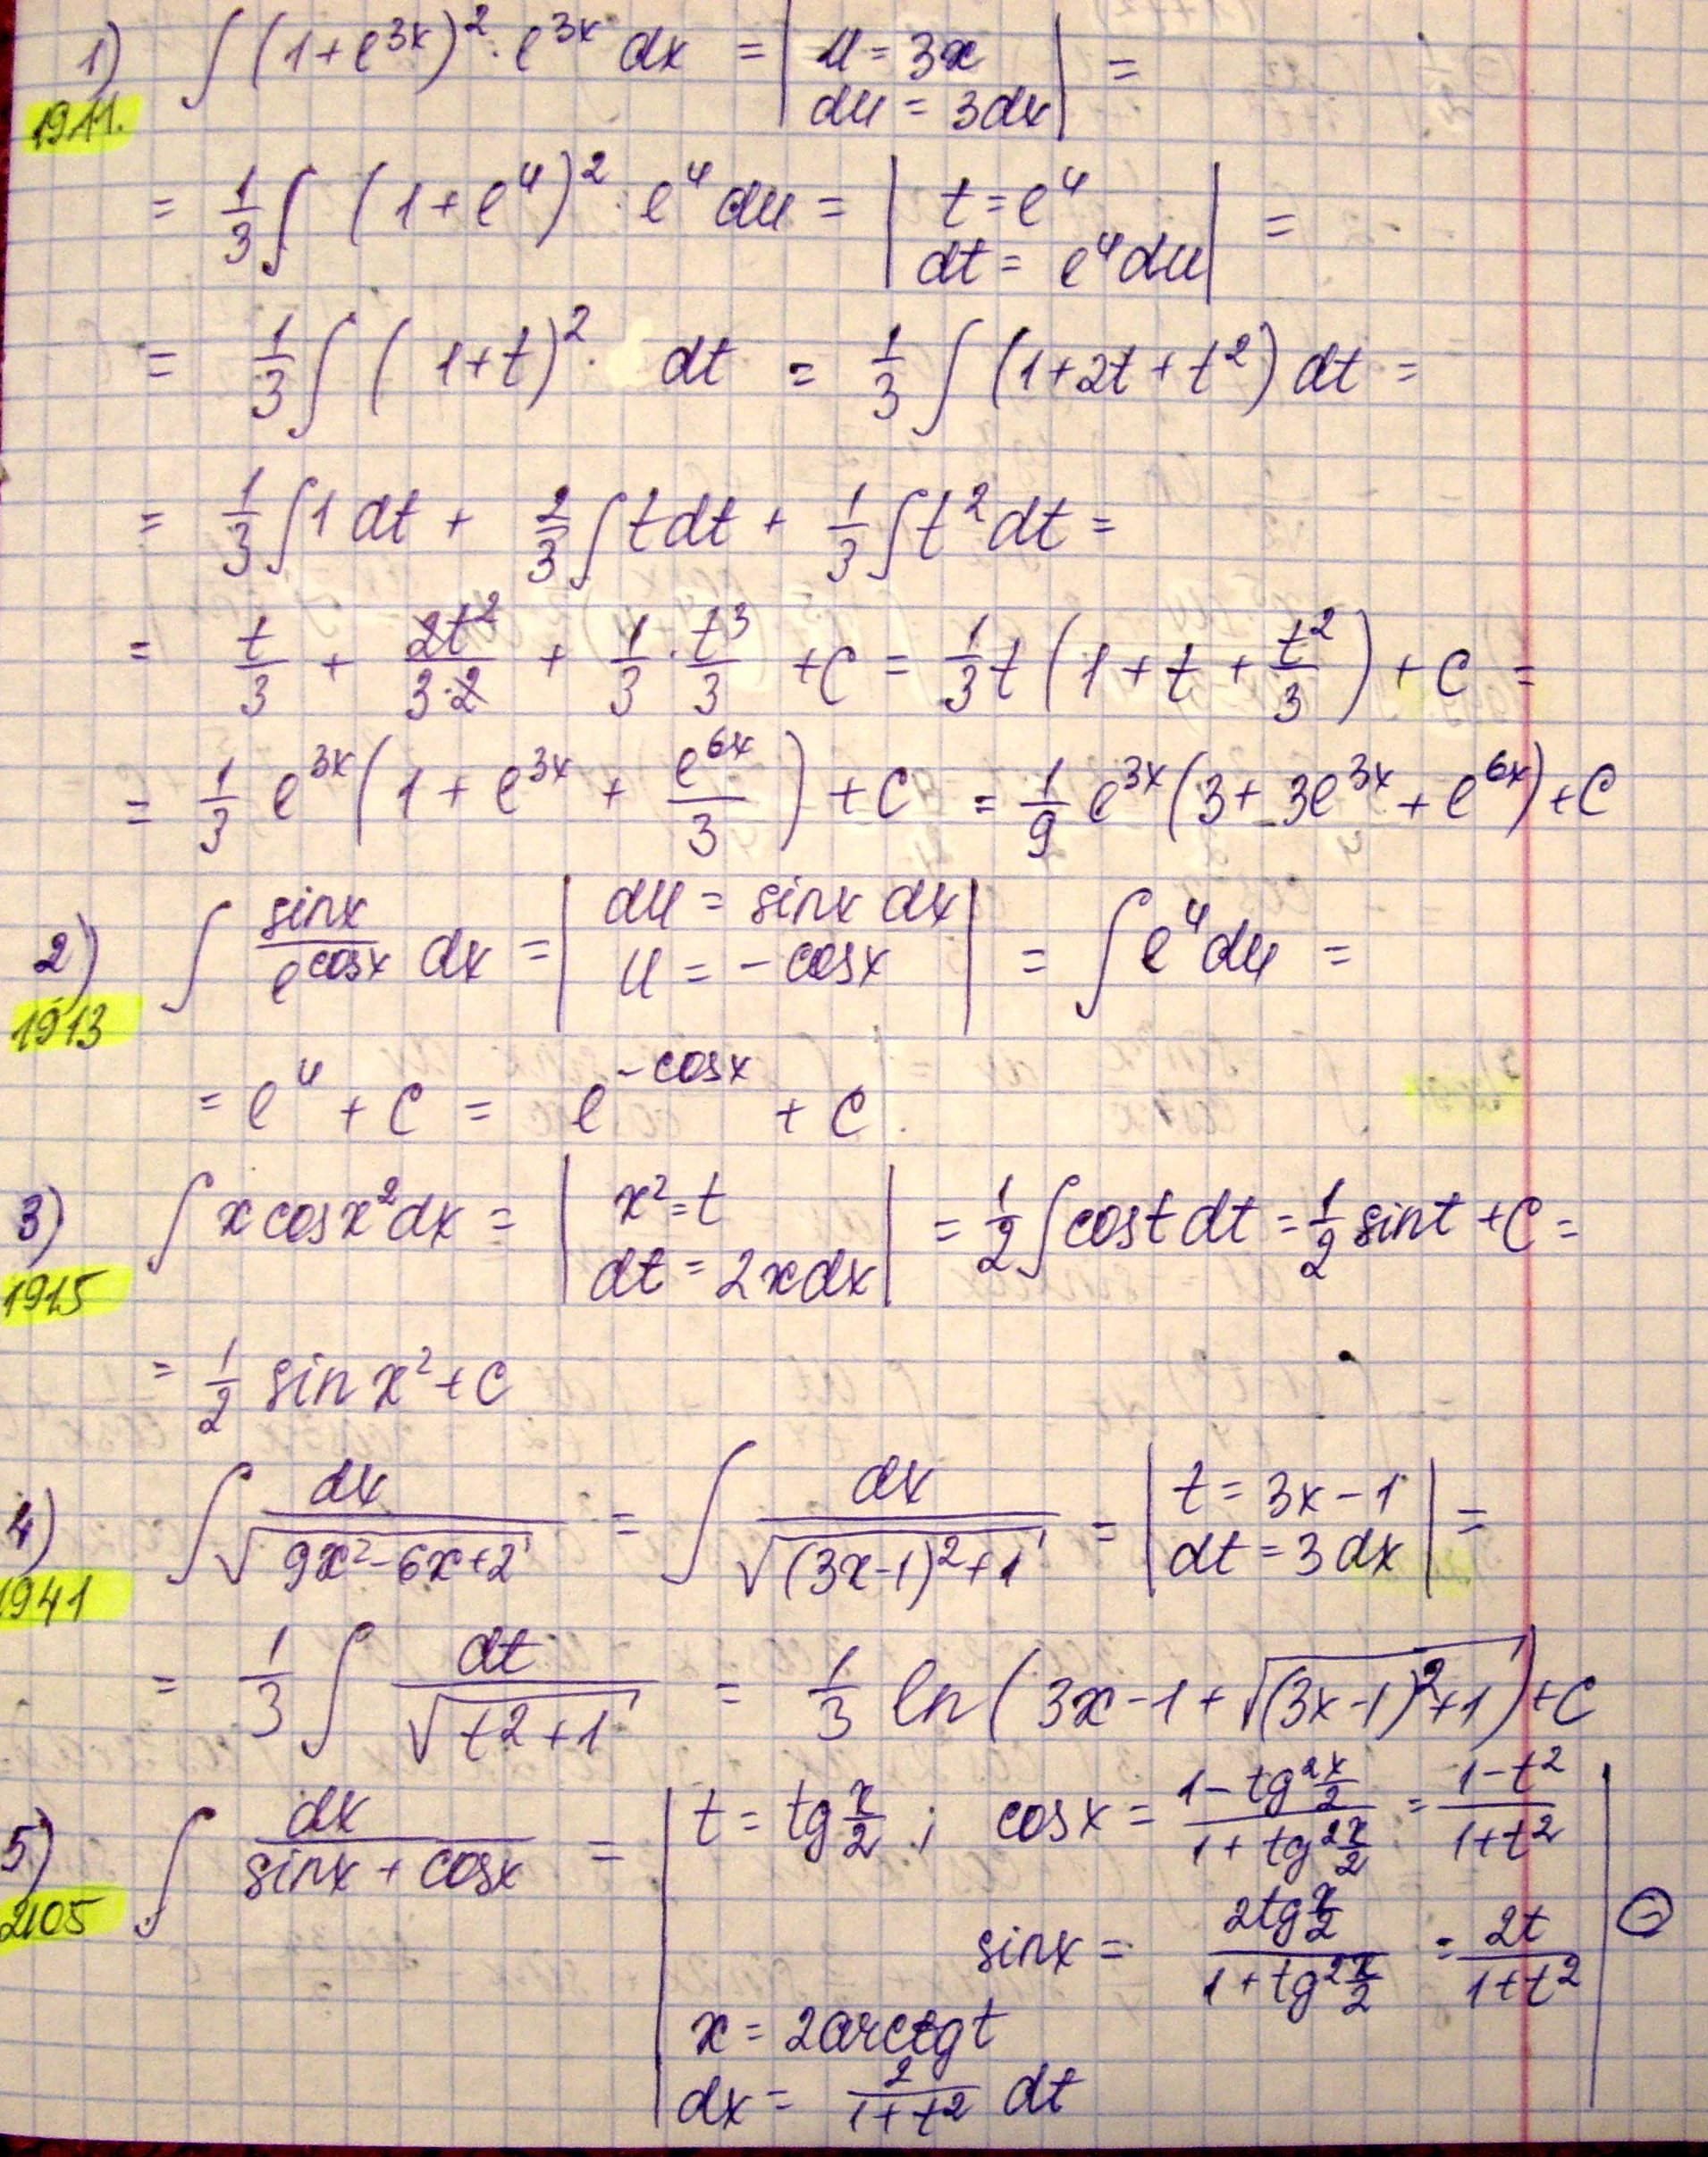 1) ∫ (1+e^{3x})^2 · e^{3x} dx = | u = 3x
1911. du = 3dx | =
= 1/3 ∫ (1+e^u)^2 · e^u du = | t = e^u
dt = e^u du | =
= 1/3 ∫ (1+t)^2 · dt = 1/3 ∫ (1+2t+t^2) dt =
= 1/3 ∫ 1 dt + 2/3 ∫ t dt + 1/3 ∫ t^2 dt =
= t/3 + 2t^2/(3·2) + 1/3 · t^3/3 + C = 1/3 t (1 + t + t^2/3) + C =
= 1/3 e^{3x} (1 + e^{3x} + e^{6x}/3) + C = 1/9 e^{3x} (3 + 3e^{3x} + e^{6x}) + C
2) ∫ sinx/e^{cosx} dx = | du = sinx dx
1913 u = -cosx | = ∫ e^u du =
= e^u + C = e^{-cosx} + C.
3) ∫ x cosx^2 dx = | x^2 = t
1915 dt = 2xdx | = 1/2 ∫ cost dt = 1/2 sint + C =
= 1/2 sin x^2 + C
4) ∫ dx/√(9x^2-6x+2) = ∫ dx/√((3x-1)^2+1) = | t = 3x-1
1941 dt = 3dx | =
= 1/3 ∫ dt/√(t^2+1) = 1/3 ln(3x-1+√((3x-1)^2+1)) + C
5) ∫ dx/(sinx + cosx) = | t = tg x/2 ; cosx = (1-tg^2 x/2)/(1+tg^2 x/2) = (1-t^2)/(1+t^2)
2105 sinx = (2tg x/2)/(1+tg^2 x/2) = 2t/(1+t^2) | ⊖
x = 2arctgt
dx = 2/(1+t^2) dt